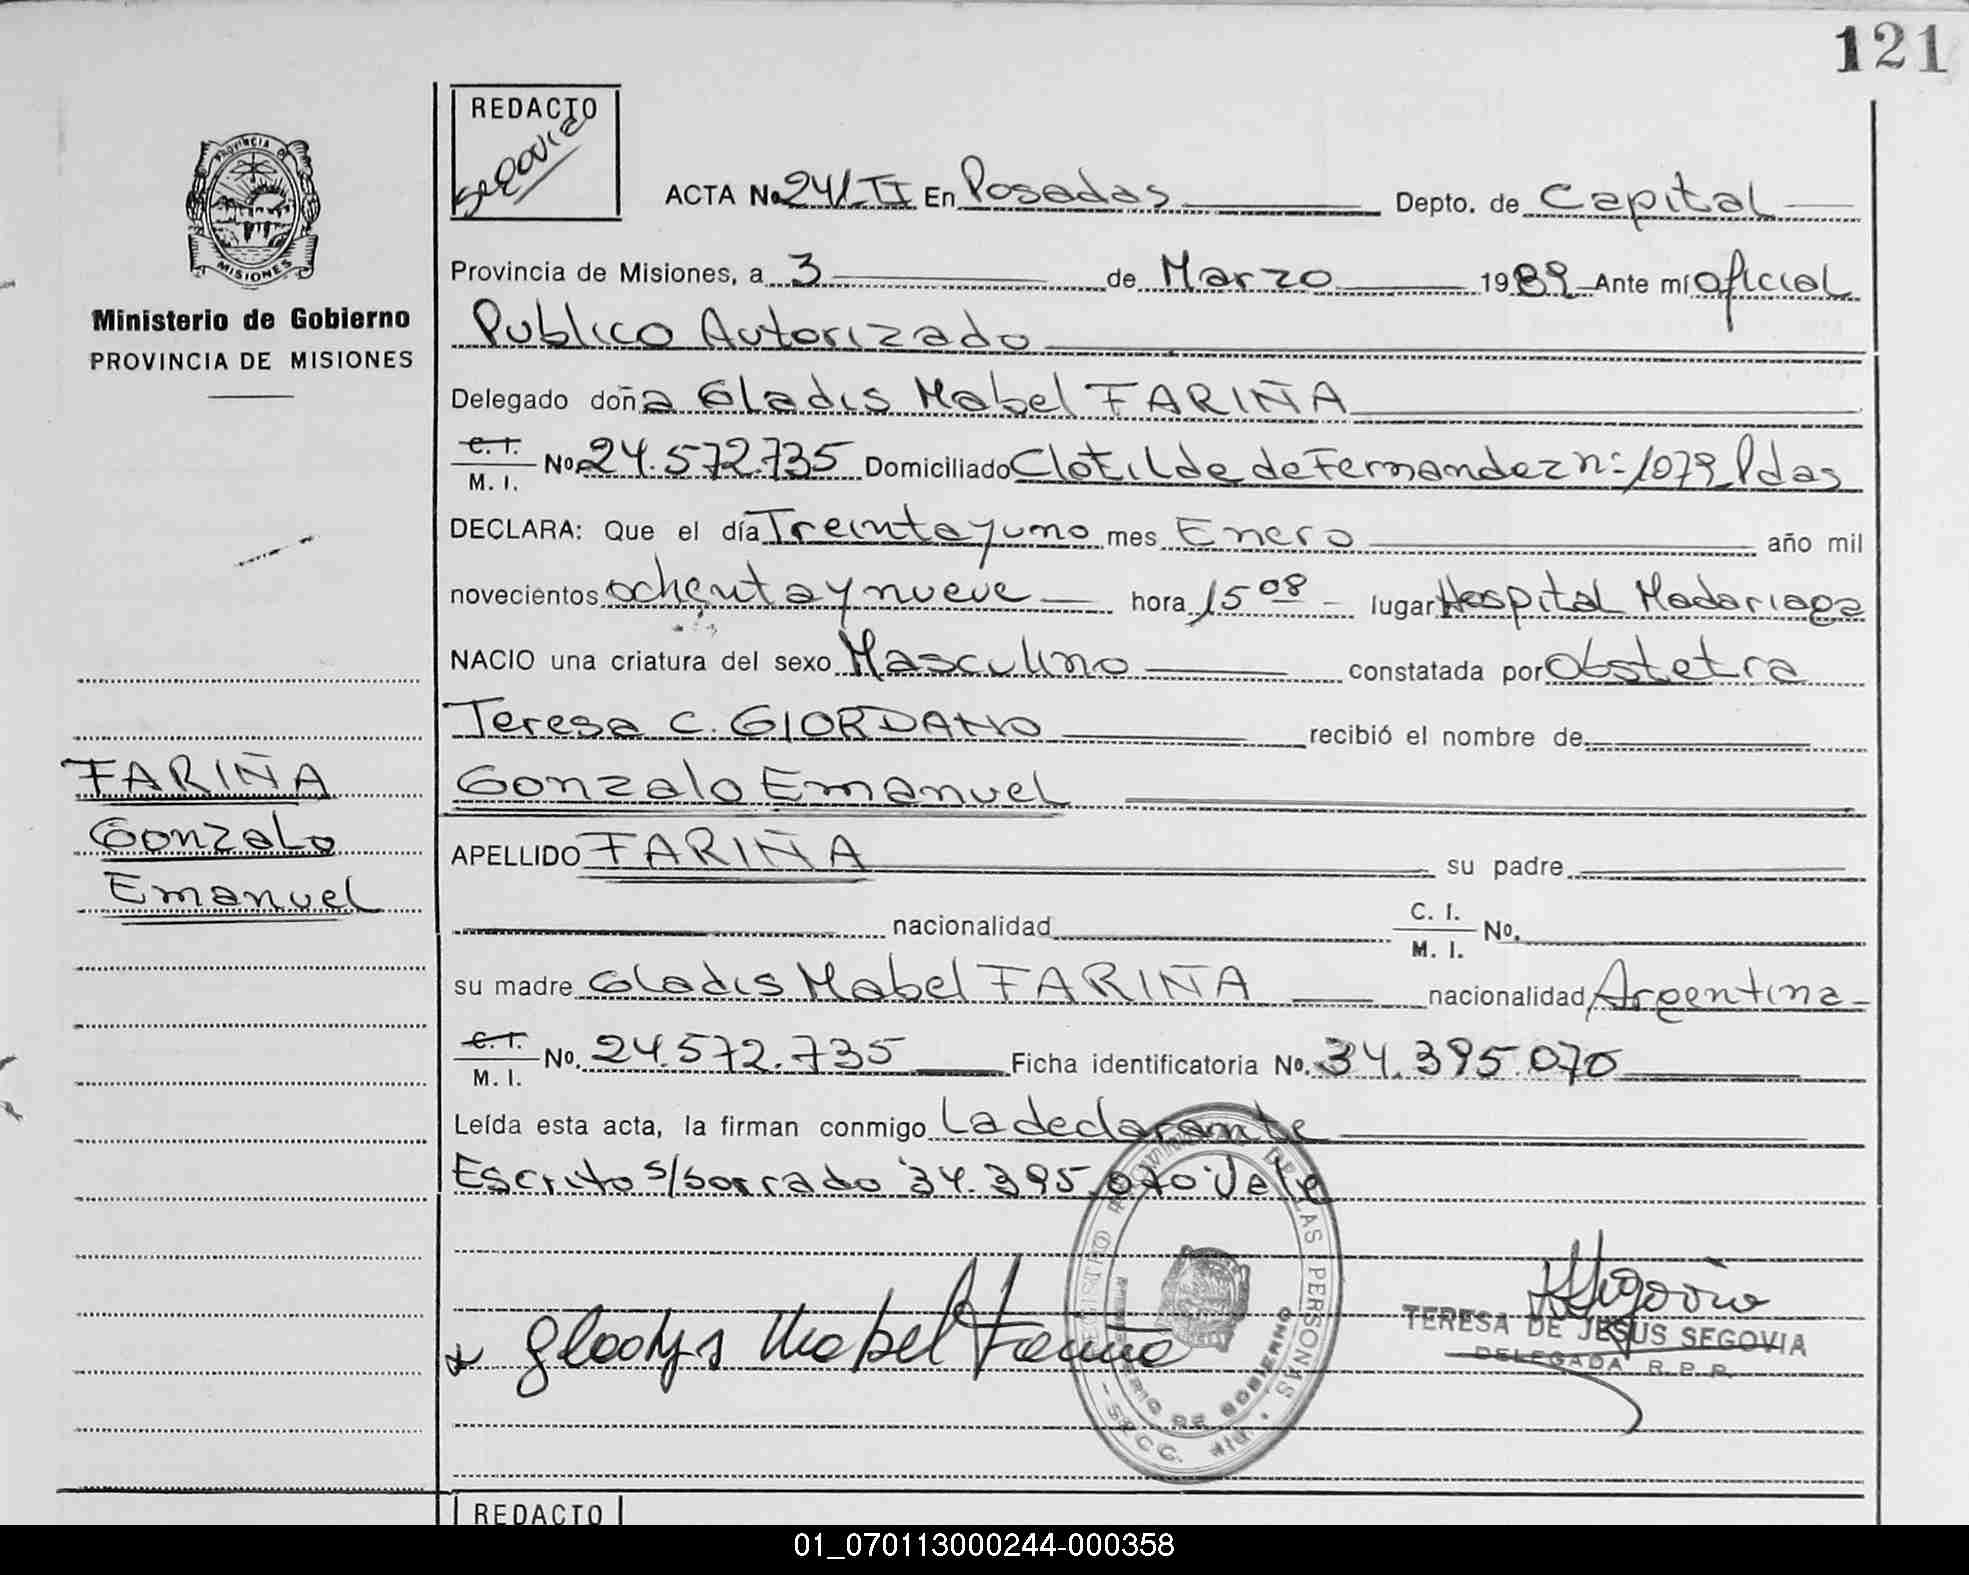 121
PROVINCIA DE
MISIONES
Ministerio de Gobierno
PROVINCIA DE MISIONES
FARIÑA
Gonzalo
Emanuel
REDACTO
Segovia
ACTA No 241 II En Posadas Depto. de Capital
Provincia de Misiones, a 3 de Marzo 1989 Ante mí oficial
Publico Autorizado
Delegado doña Gladis Mabel FARIÑA
C.I. M.I. No. 24.572.735 Domiciliado Clotilde de Fernandez nº 1079 Pdas
DECLARA: Que el día Treinta y uno mes Enero año mil
novecientos ochenta y nueve hora 15 08 lugar Hospital Madariaga
NACIO una criatura del sexo Masculino constatada por Obstetra
Teresa C. GIORDANO recibió el nombre de
Gonzalo Emanuel
APELLIDO FARIÑA su padre
nacionalidad C. I. M. I. No.
su madre Gladis Mabel FARIÑA nacionalidad Argentina
C.I. M. I. No. 24.572.735 Ficha identificatoria No. 34.395.070
Leída esta acta, la firman conmigo La declarante
Escrito s/borrado "34.395.070" Vale
Gladys Mabel Fariña
REGISTRO PROVINCIAL DE LAS PERSONAS
MINISTERIO DE GOBIERNO
Segovia
TERESA DE JESUS SEGOVIA
DELEGADA R.P.P.
REDACTO
01_070113000244-000358